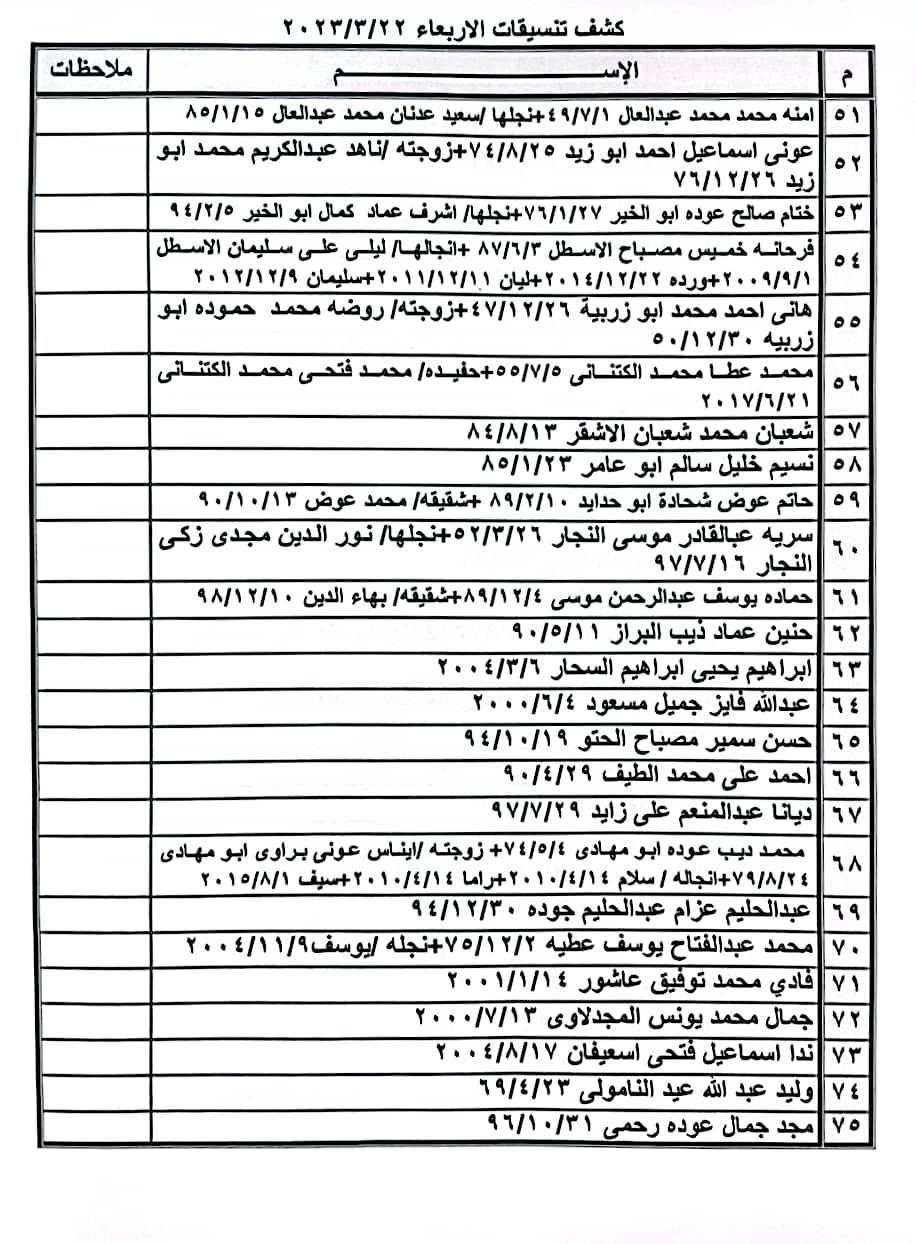 كشف تنسيقات الاربعاء ٢٠٢٣/٣/٢٢
م الإســـــــــــم ملاحظات
٥١ امنه محمد محمد عبدالعال ٤٩/٧/١+نجلها /سعيد عدنان محمد عبدالعال ٨٥/١/١٥
٥٢ عونى اسماعيل احمد ابو زيد ٧٤/٨/٢٥+زوجته /ناهد عبدالكريم محمد ابو
زيد ٧٦/١٢/٢٦
٥٣ ختام صالح عوده ابو الخير ٧٦/١/٢٧+نجلها/ اشرف عماد كمال ابو الخير ٩٤/٢/٥
٥٤ فرحانه خميس مصباح الاسطل ٨٧/٦/٣ +انجالها/ ليلى على سليمان الاسطل
٢٠٠٩/٩/١+ورده ٢٠١٤/١٢/٢٢+ليان ٢٠١١/١٢/١١+سليمان ٢٠١٢/١٢/٩
٥٥ هانى احمد محمد ابو زربية ٤٧/١٢/٢٦+زوجته/ روضه محمد حموده ابو
زربيه ٥٠/١٢/٣٠
٥٦ محمد عطا محمد الكتنانى ٥٥/٧/٥+حفيده/ محمد فتحى محمد الكتنانى
٢٠١٧/٦/٢١
٥٧ شعبان محمد شعبان الاشقر ٨٤/٨/١٣
٥٨ نسيم خليل سالم ابو عامر ٨٥/١/٢٣
٥٩ حاتم عوض شحادة ابو حدايد ٨٩/٢/١٠ +شقيقه/ محمد عوض ٩٠/١٠/١٣
٦٠ سريه عبالقادر موسى النجار ٥٢/٣/٢٦+نجلها/ نور الدين مجدى زكى
النجار ٩٧/٧/١٦
٦١ حماده يوسف عبدالرحمن موسى ٨٩/١٢/٤+شقيقه/ بهاء الدين ٩٨/١٢/١٠
٦٢ حنين عماد ذيب البراز ٩٠/٥/١١
٦٣ ابراهيم يحيى ابراهيم السحار ٢٠٠٤/٣/٦
٦٤ عبدالله فايز جميل مسعود ٢٠٠٠/٦/٤
٦٥ حسن سمير مصباح الحتو ٩٤/١٠/١٩
٦٦ احمد على محمد الطيف ٩٠/٤/٢٩
٦٧ ديانا عبدالمنعم على زايد ٩٧/٧/٢٩
٦٨ محمد ديب عوده ابو مهادى ٧٤/٥/٤+ زوجته /ايناس عونى براوى ابو مهادى
٧٩/٨/٢٤+انجاله / سلام ٢٠١٠/٤/١٤+راما ٢٠١٠/٤/١٤+سيف ٢٠١٥/٨/١
٦٩ عبدالحليم عزام عبدالحليم جوده ٩٤/١٢/٣٠
٧٠ محمد عبدالفتاح يوسف عطيه ٧٥/١٢/٢+نجله /يوسف٢٠٠٤/١١/٩
٧١ فادي محمد توفيق عاشور ٢٠٠١/١/١٤
٧٢ جمال محمد يونس المجدلاوى ٢٠٠٠/٧/١٣
٧٣ ندا اسماعيل فتحى اسعيفان ٢٠٠٤/٨/١٧
٧٤ وليد عبد الله عيد النامولى ٦٩/٤/٢٣
٧٥ مجد جمال عوده رحمى ٩٦/١٠/٣١